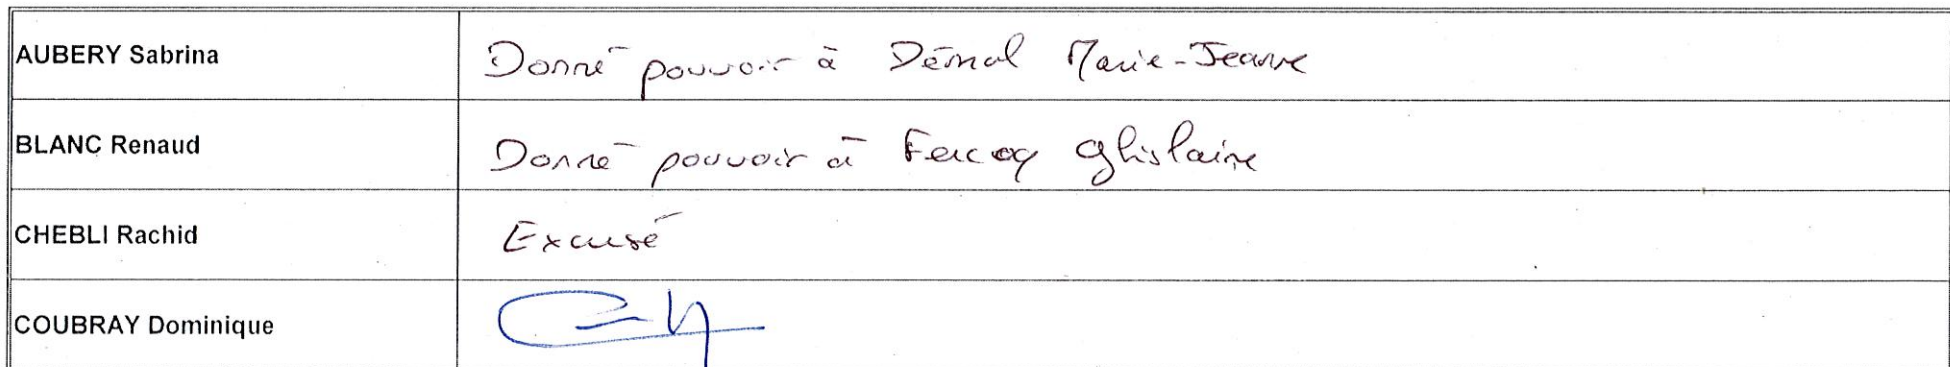 AUBERY Sabrina Donné pouvoir à Démal Marie-Jeanne
BLANC Renaud Donné pouvoir à Fercoq Ghislaine
CHEBLI Rachid Excusé
COUBRAY Dominique